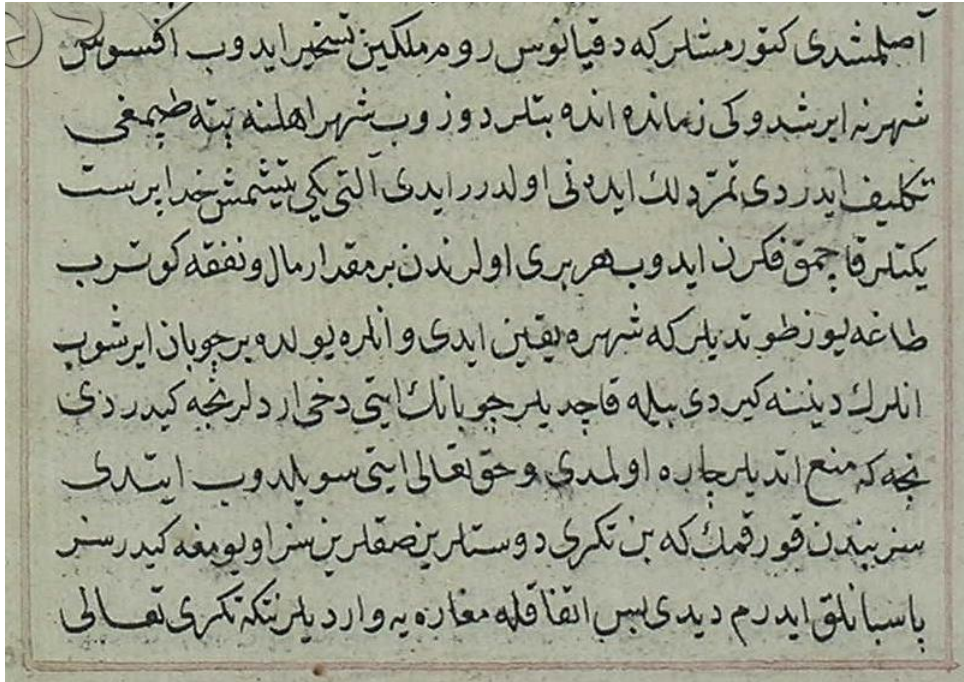 آصلمشدی کتورمشلر که دقیانوس روم ملکین تسخیر ایدوب افسوس
شهرنه ایرشدوکی زمانده انده بتلر دوزوب شهر اهلنه بته طپمغی
تکلیف ایدردی تمرّدلك ایده نی اولدررایدی آلتی یکی یتیشمش خداپرست
یکتلر قاچمق فکرن ایدوب هر بری اولرندن بر مقدار مال و نفقه کوترب
طاغه یوز طوتدیلر که شهره یقین ایدی و انلره یولده بر چوبان ایرشوب
انلرك دیننه کیردی بیله قاچدیلر چوبانك ایتی دخی اردلرنجه کیدردی
نجه که منع اتدیلر چاره اولمدی و حق تعالی ایتی سویلدوب ایتدی
سز بندن قورقمك که بن تکری دوستلرین صقلرین سز اویومغه کیدرسز
پاسبانلق ایدرم دیدی پس اتفاقله مغاره یه واردیلر نتکه تکری تعالی